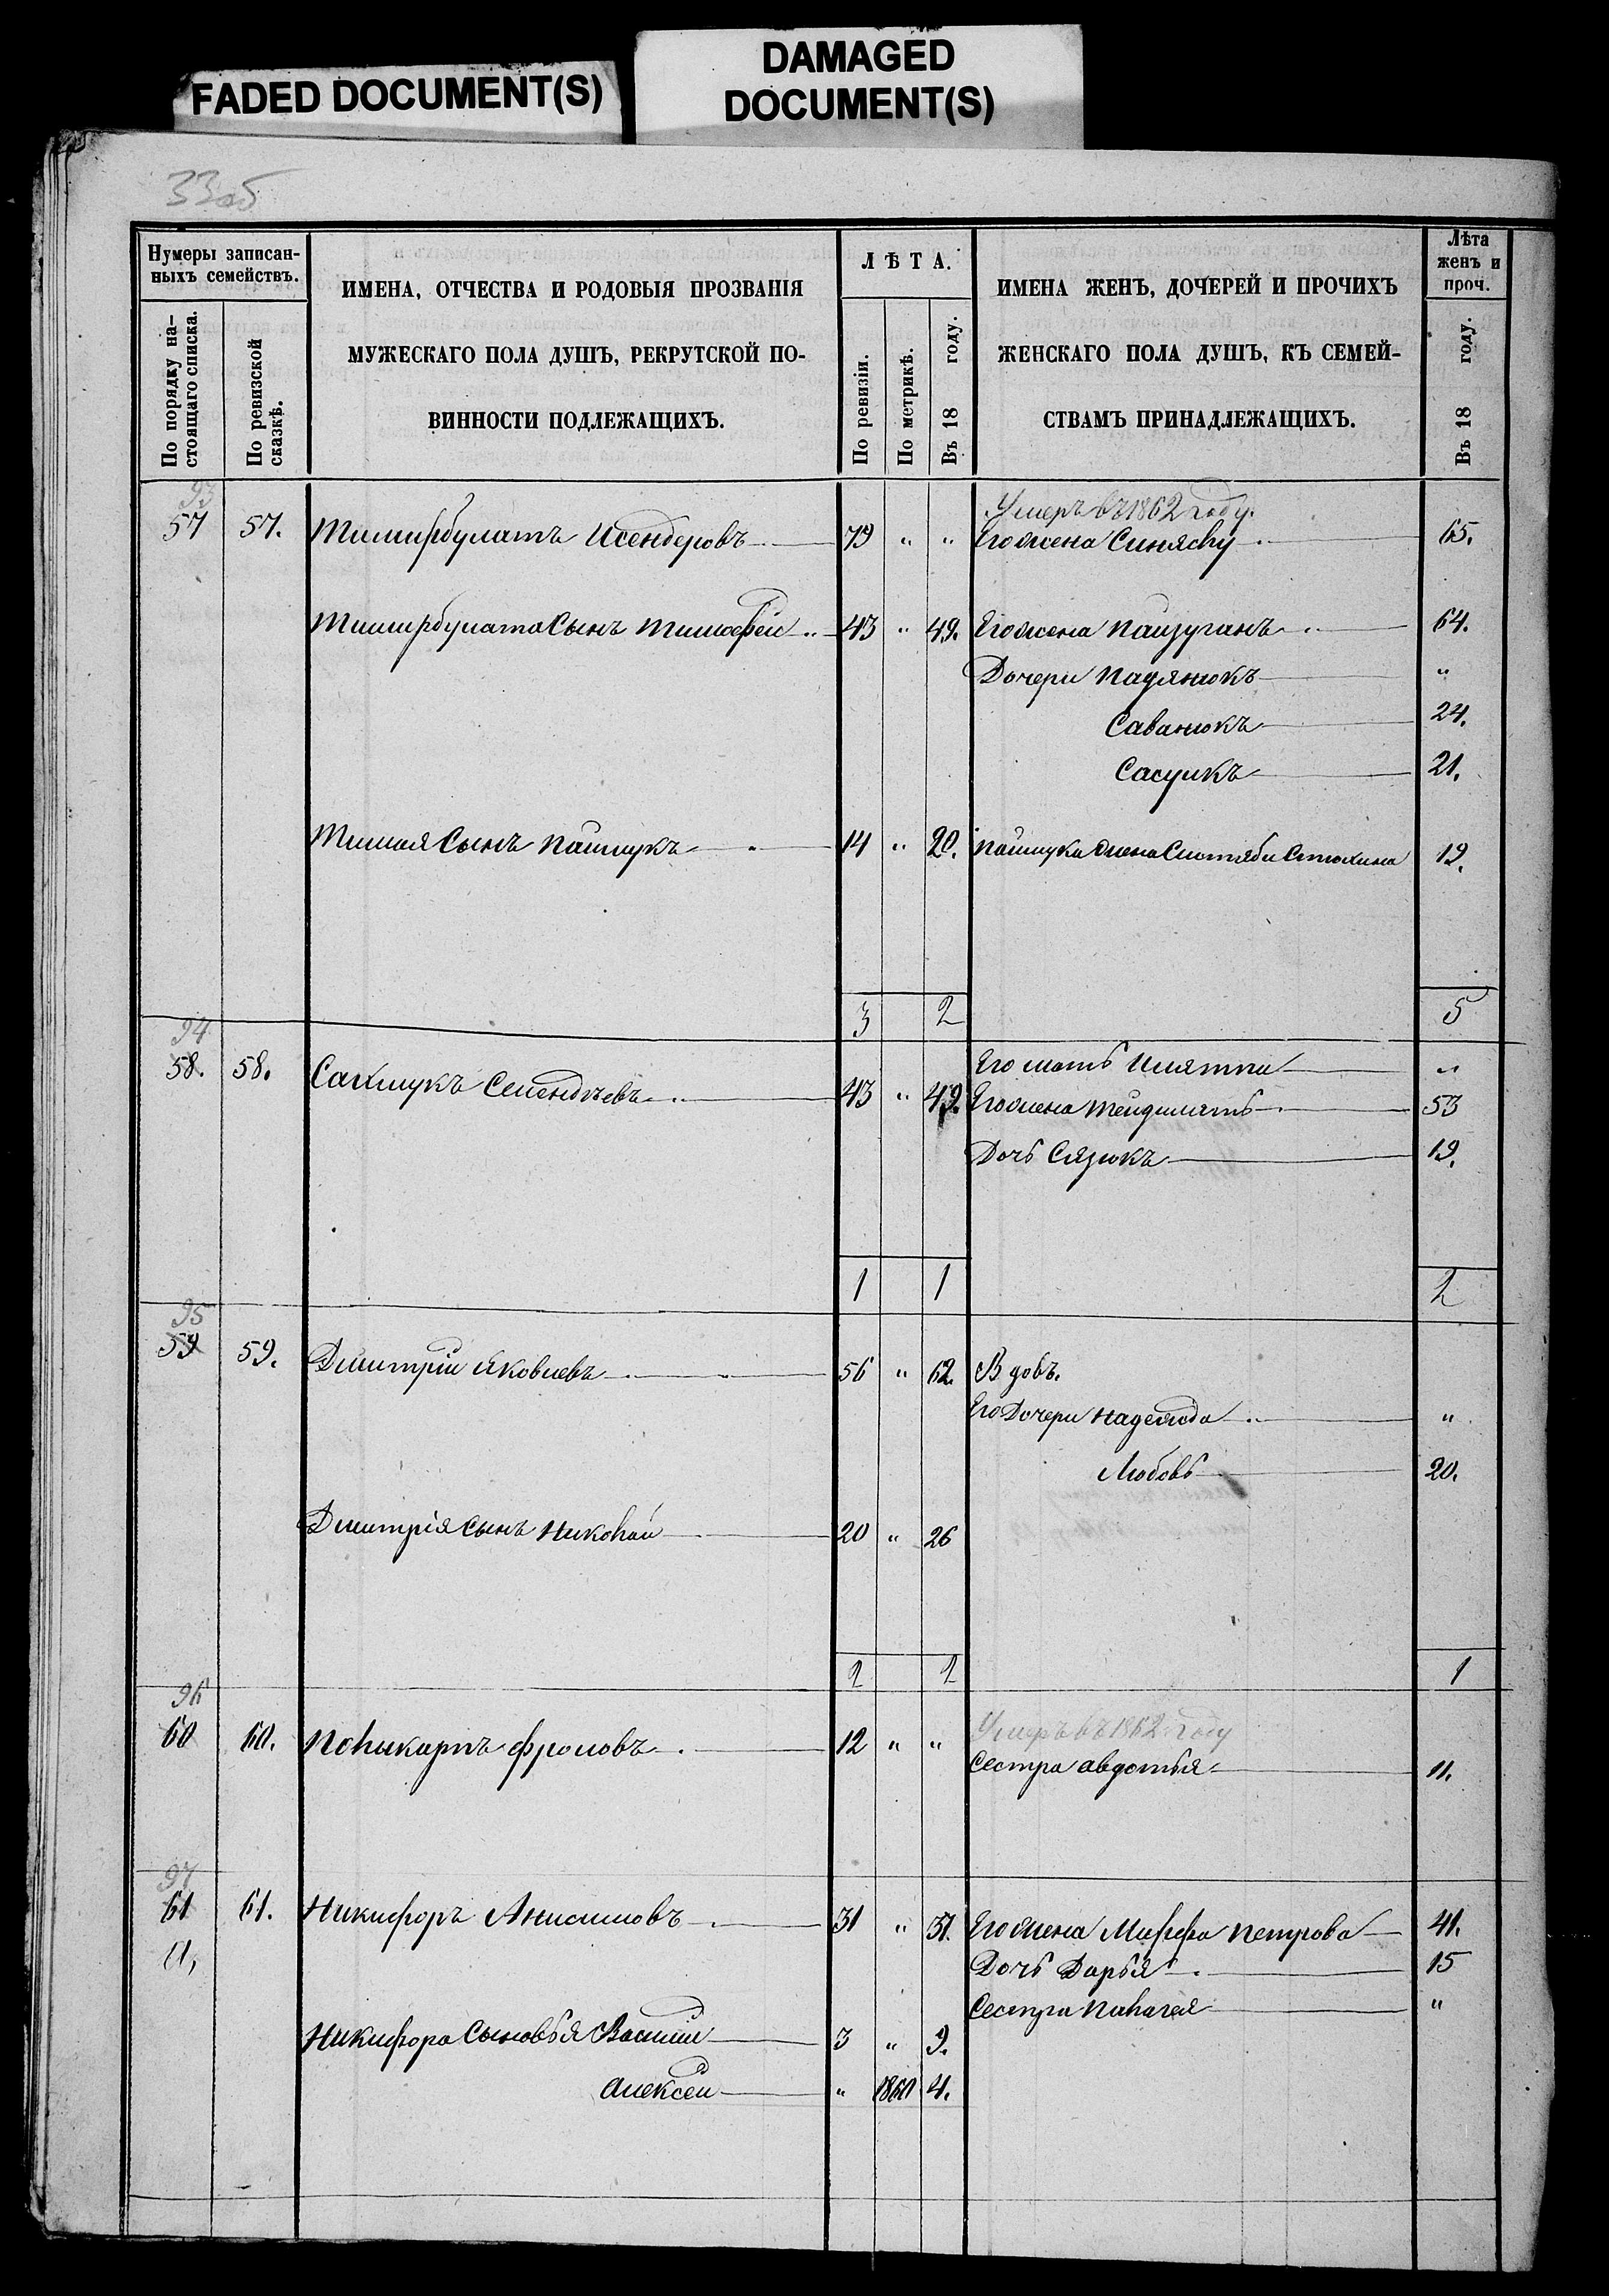 FADED DOCUMENT(S)
DAMAGED
DOCUMENT(S)
33об
Нумеры записан-
ныхъ семействъ.
По порядку на-
стоящаго списка.
По ревизской
сказкѣ.
ИМЕНА, ОТЧЕСТВА И РОДОВЫЯ ПРОЗВАНІЯ
МУЖЕСКАГО ПОЛА ДУШЪ, РЕКРУТСКОЙ ПО-
ВИННОСТИ ПОДЛЕЖАЩИХЪ.
ЛѢТА.
По ревизіи.
По метрикѣ.
Въ 18 году.
ИМЕНА ЖЕНЪ, ДОЧЕРЕЙ И ПРОЧИХЪ
ЖЕНСКАГО ПОЛА ДУШЪ, КЪ СЕМЕЙ-
СТВАМЪ ПРИНАДЛЕЖАЩИХЪ.
Лѣта
женъ и
проч.
Въ 18 году.
93
Умеръ въ 1862 году.
57 57. Тимирбулатъ Исендеровъ 79 " " Его жена Синясву 65.
Тимирбулата Сынъ Тимофей 43 " 49. Его жена Пайзуганъ 64.
Дочери Надянюкъ "
Саванюкъ 24.
Сасуикъ 21.
Тимоя Сынъ Паймукъ 14 " 20. Паймука жена 19.
3 2 5
94
Его мать "
58. 58. Сахмукъ Семендѣевъ 43 " 49. Его жена 53
Дочь Сязюкъ 19.
1 1 2
95
59 59. Дмитрій Яковлевъ 56 " 62. Вдовъ.
Его Дочери Надежда "
Любовь 20.
Дмитрія Сынъ Николай 20 " 26
2 2 1
96
Умеръ въ 1862 году
60 60. Поликарпъ Фроловъ 12 " "
Сестра Авдотья 11.
97
61 61. Никифоръ Анисимовъ 31 " 37. Его жена Марфа Петрова 41.
Дочь Дарья 15
Сестра Палагея "
Никифора Сыновья Василій 3 " 9.
Алексей " 1860 4.